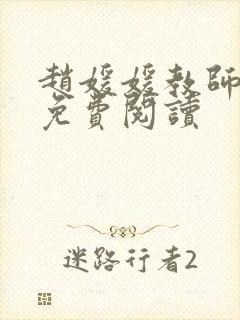 趙媛媛教師
免費閱讀
迷路行者2